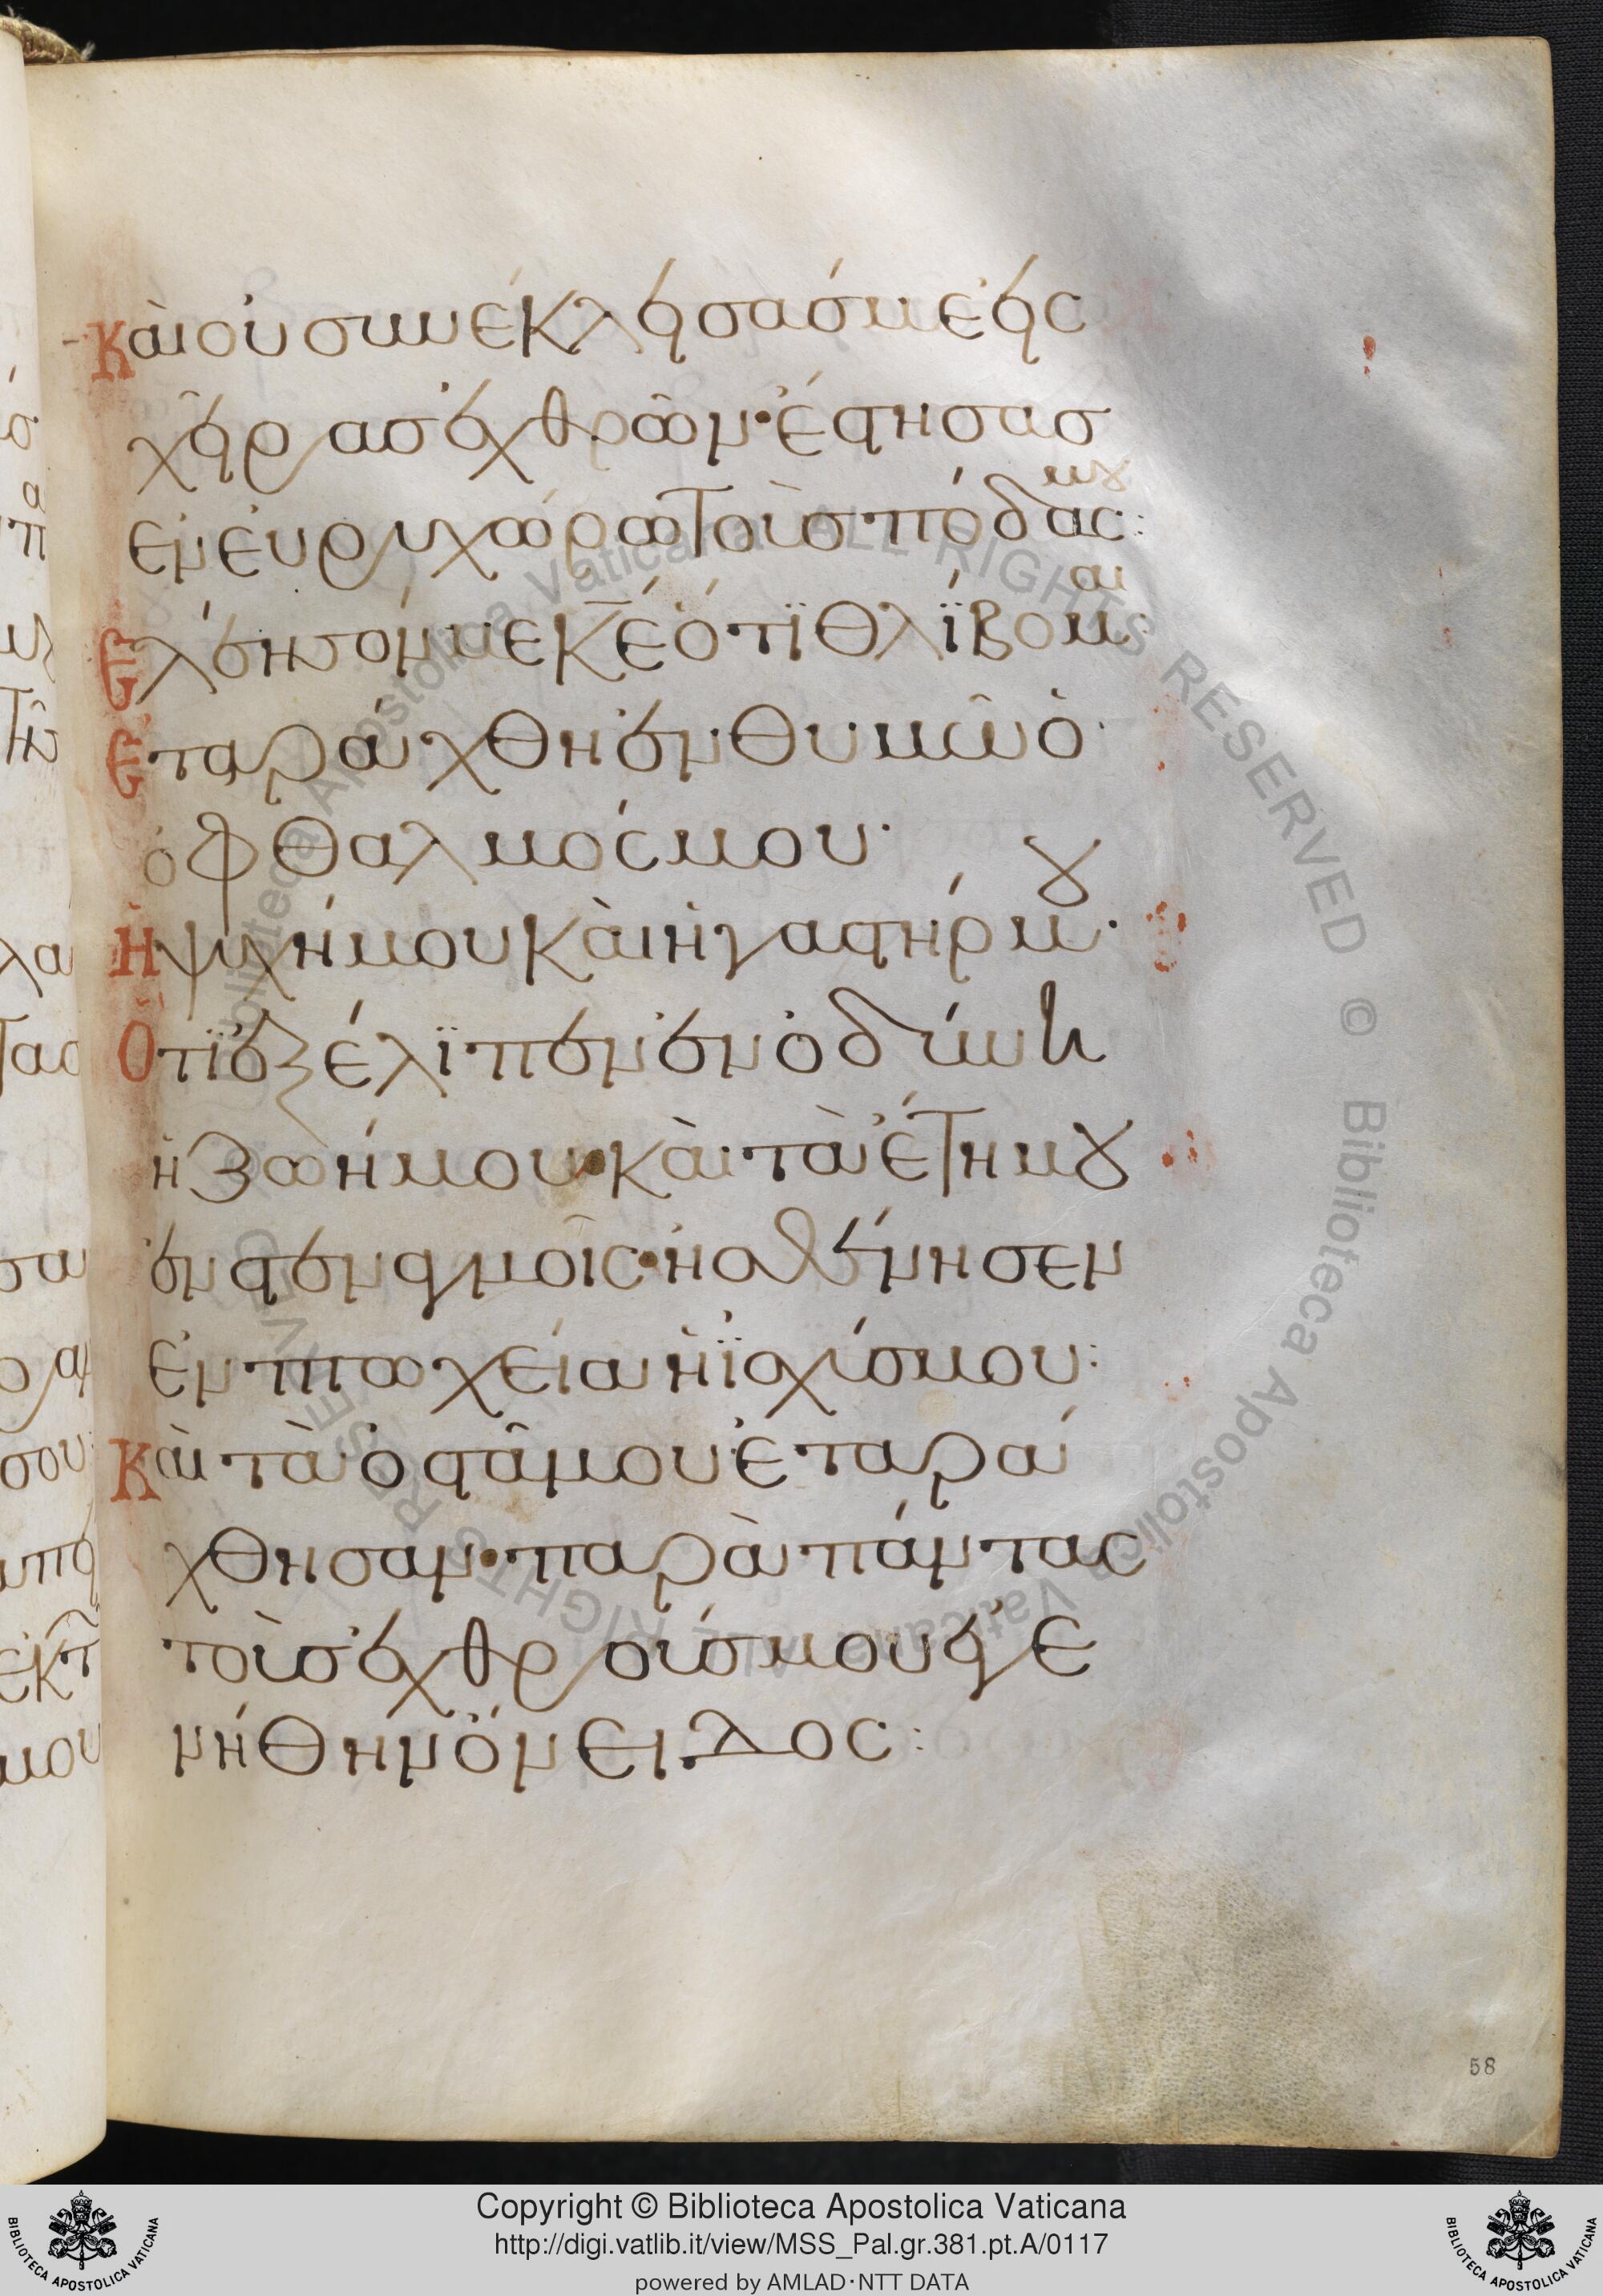 Καὶ οὐ συνέκλεισάσ με εἰς
χεῖρας ἐχθρῶν· ἔστησας
ἐν εὐρυχώρω τοὺς πόδας μου:
Ἐλέησόν με κ̅ε̅ ὅτϊ θλίβομαι·
Ἐταράχθη ἐν θυμῶ ὁ
ὀφθαλμός μου·
Ἡ ψυχή μου καὶ ἡ γαστήρ μου·
Ὅτϊ ἐξέλϊπεν ἐν ὀδύνη
ἡ ζωή μου· καὶ τὰ ἔτη μου
ἐν στεναγμοῖς· ἠσθένησεν
ἐν πτωχεία ἡ ϊσχύς μου:
Καὶ τὰ ὀστᾶ μου ἐταρά
χθησαν· παρὰ πάντας
τοὺς ἐχθρούς μου ἐγε
νήθην ὄνειδος:
58
BIBLIOTECA APOSTOLICA VATICANA
Copyright © Biblioteca Apostolica Vaticana
http://digi.vatlib.it/view/MSS_Pal.gr.381.pt.A/0117
powered by AMLAD·NTT DATA
BIBLIOTECA APOSTOLICA VATICANA